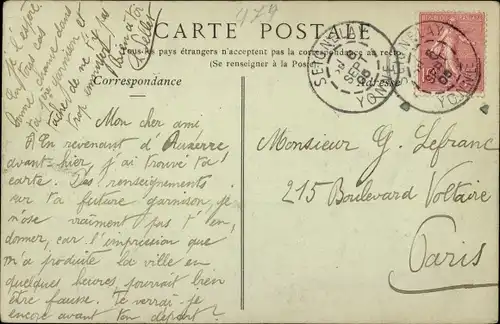 479
CARTE POSTALE
Tous les pays étrangers n'acceptent pas la correspondance au recto
(Se renseigner à la Poste)
Correspondance
Adresse
SEIGNELAY
YONNE
Mon cher ami
En revenant d'Auxerre
avant-hier, j'ai trouvé ta
carte. Des renseignements
sur ta future garnison, je
n'ose vraiment pas t'en
donner, car l'impression que
m'a produite la ville en
quelques heures pourrait bien
être fausse. Te verrai-je
encore avant ton départ ?
Je l'espère.
En tous cas
bonne chance dans
ta garnison et
tâche de ne pas
trop
Monsieur G. Lefranc
215 Boulevard Voltaire
Paris